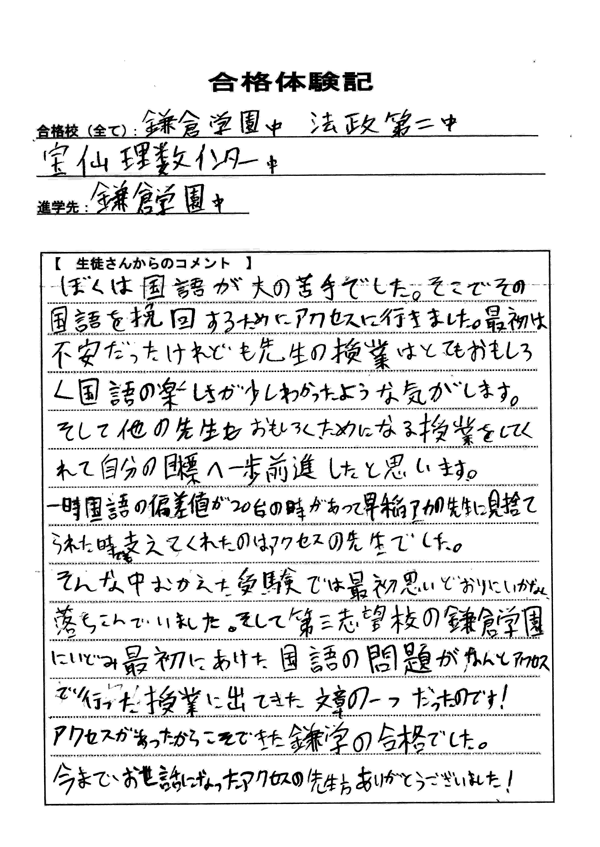 合格体験記
合格校（全て）：鎌倉学園中　法政第二中
宝仙理数インター中
進学先：鎌倉学園中
【　生徒さんからのコメント　】
ぼくは国語が大の苦手でした。そこでその
国語を挽回するためにアクセスに行きました。最初は
不安だったけれども先生の授業はとてもおもしろ
く国語の楽しさが少しわかったような気がします。
そして他の先生もおもしろくためになる授業をしてく
れて自分の目標へ一歩前進したと思います。
一時国語の偏差値が20台の時があって早稲アカの先生に見捨て
られた時でも支えてくれたのはアクセスの先生でした。
そんな中むかえた受験では最初思いどおりにいかなく
落ちこんでいました。そして第三志望校の鎌倉学園
にいどみ最初にあけた国語の問題がなんとアクセス
で行った授業に出てきた文章の一つだったのです！
アクセスがあったからこそできた鎌学の合格でした。
今までお世話になったアクセスの先生方ありがとうございました！